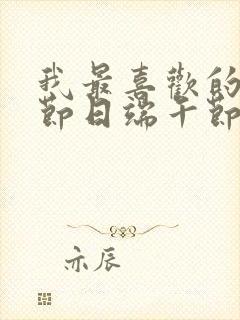 我最喜歡的
節日端午節
亦辰